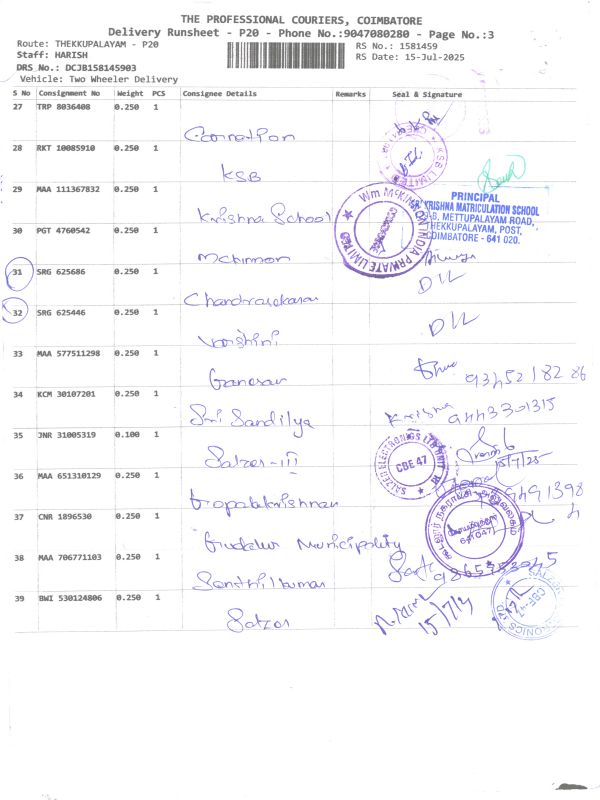 THE PROFESSIONAL COURIERS, COIMBATORE
Delivery Runsheet - P20 - Phone No.:9047080280 - Page No.:3
Route: THEKKUPALAYAM - P20
RS No.: 1581459
Staff: HARISH
RS Date: 15-Jul-2025
DRS No.: DCJB158145903
Vehicle: Two Wheeler Delivery
S No Consignment No Weight PCS Consignee Details Remarks Seal & Signature
27 TRP 8036408 0.250 1
28 RKT 10085910 0.250 1
KSB
KSB LIMITED
29 MAA 111367832 0.250 1
Krishna School
PRINCIPAL
KRISHNA MATRICULATION SCHOOL
METTUPALAYAM ROAD,
THEKKUPALAYAM, POST,
COIMBATORE - 641 020.
30 PGT 4760542 0.250 1
Mckinnon
INDIA PRIVATE LIMITED
31 SRG 625686 0.250 1
Chandrasekaran
D/L
32 SRG 625446 0.250 1
Varshini
D/L
33 MAA 577511298 0.250 1
Ganesan
93452 182 86
34 KCM 30107201 0.250 1
Sri Sandilya
Krishna
35 JNR 31005319 0.100 1
Salzer-III
SALZER ELECTRONICS LTD UNIT III
CBE 47
15/7/25
36 MAA 651310129 0.250 1
Gopalakrishnan
37 CNR 1896530 0.250 1
Gudalur Municipality
38 MAA 706771103 0.250 1
Senthilkumar
39 BWI 530124806 0.250 1
Salzer
15/7/25